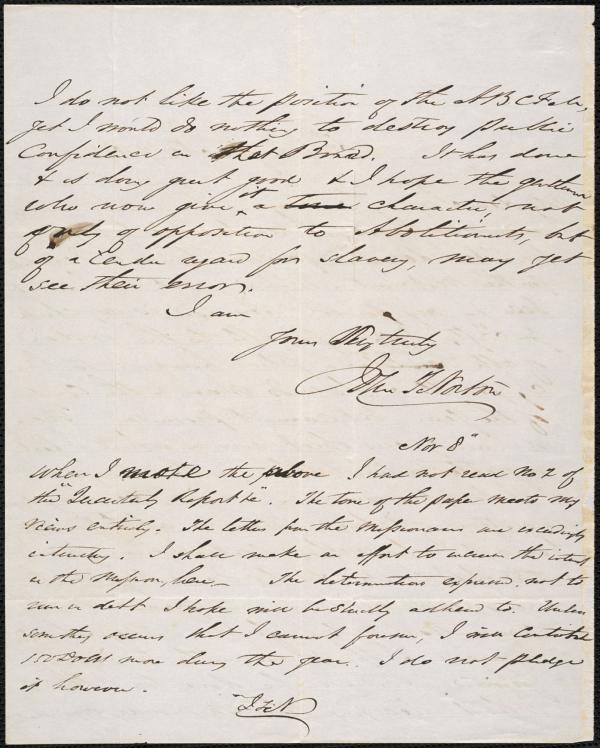 I do not like the position of the A B C F M,
yet I would do nothing to destroy public
confidence in that Board. It has done
& is doing great good & I hope the gentlemen
who now give it a character, not
only of opposition to Abolitionists, but
of a tender regard for slavery, may yet
see their error.
I am
Yours Respectfully
John T Norton
Nov 8"
When I wrote the above I had not read No 2 of
the "Quarterly Report &c". The tone of the paper meets my
views entirely. The letters from the Missionaries are exceedingly
interesting. I shall make an effort to increase the interest
in the Mission, here. The determination expressed, not to
run in debt I hope will be strictly adhered to. Unless
something occurs that I cannot foresee, I will contribute
150 Dollars more during the year. I do not pledge
it however.
J T N